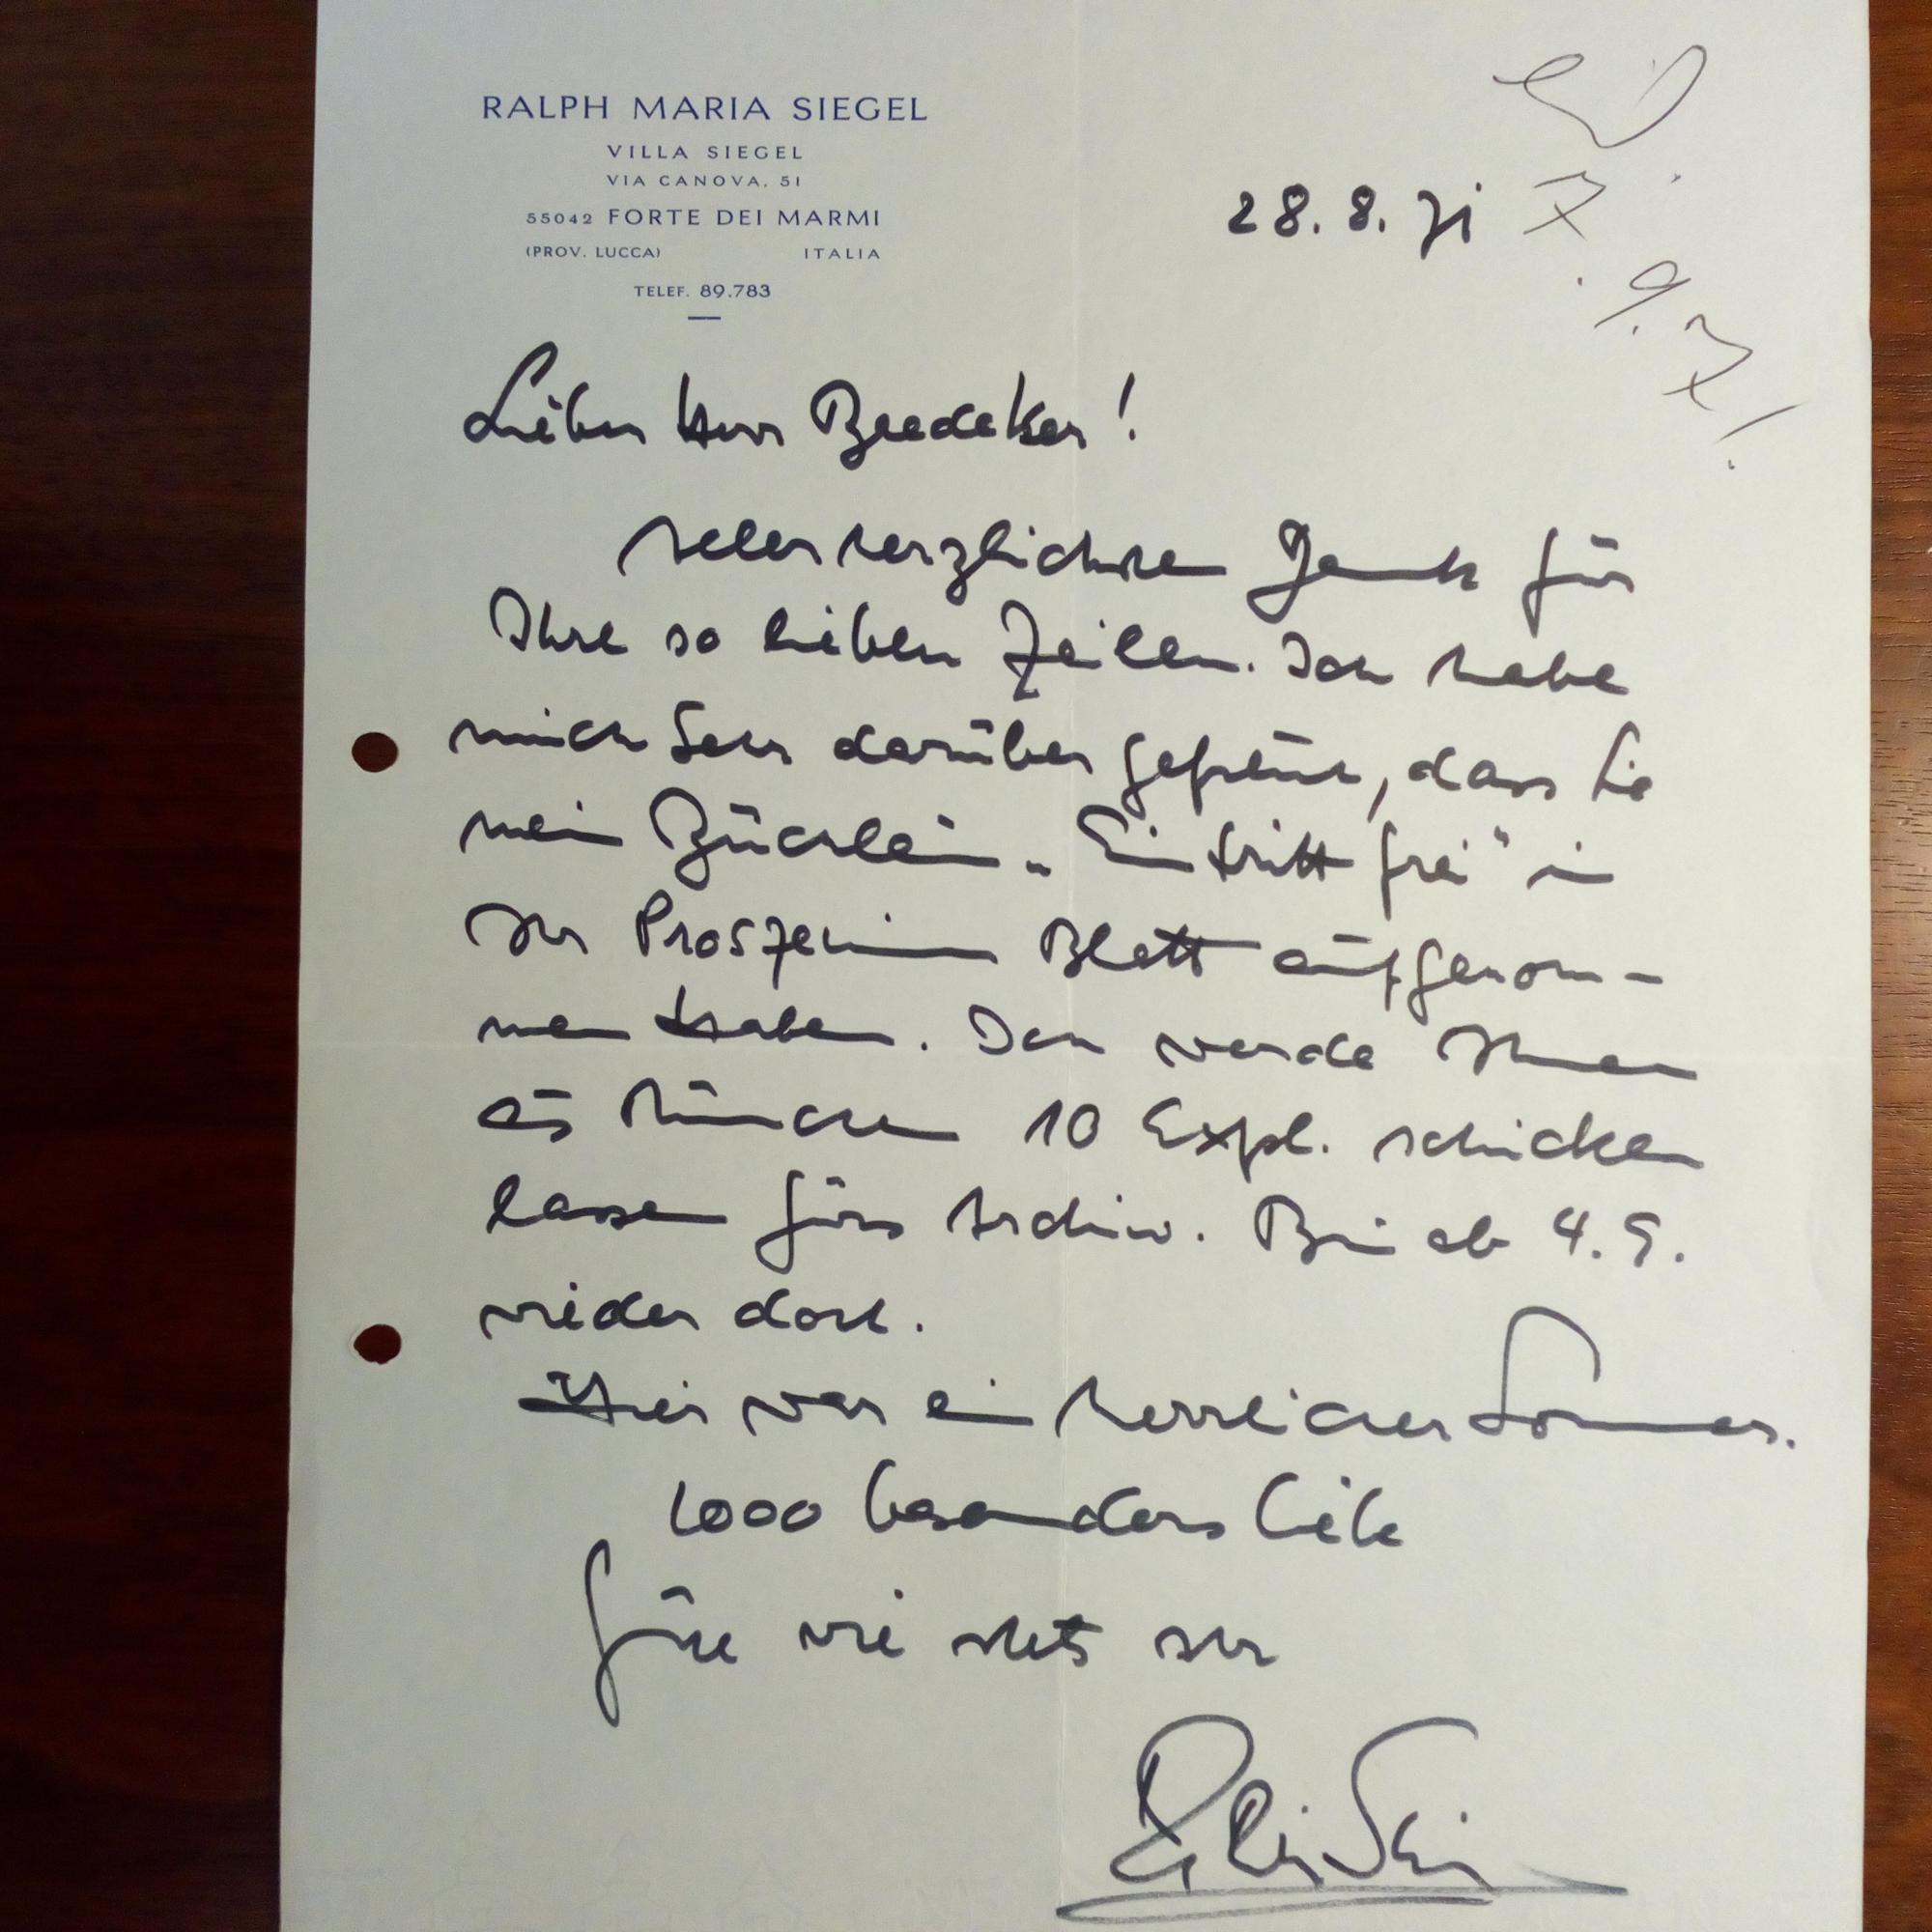 RALPH MARIA SIEGEL
VILLA SIEGEL
VIA CANOVA, 51
55042 FORTE DEI MARMI
(PROV. LUCCA) ITALIA
TELEF. 89.783
28.8.71
7.9.71
Lieber Herr Bredeker!
allerherzlichsten Dank für
Ihre so lieben Zeilen. Ich habe
mich sehr darüber gefreut, dass Sie
mein Büchlein „Eintritt frei" in
Ihr Proszenium Blatt aufgenom-
men haben. Ich werde Ihnen
aus München 10 Expl. schicken
lassen fürs Archiv. Bin ab 4.9.
wieder dort.
Hier war ein herrlicher Sommer.
1000 besonders liebe
Grüße wie stets Ihr